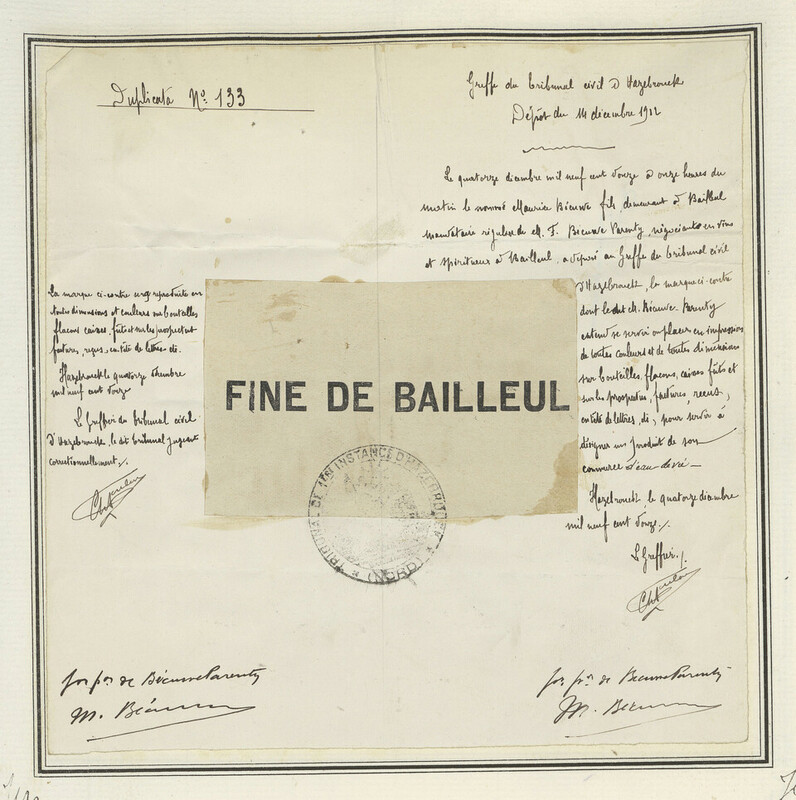 Duplicata No. 133
Greffe du tribunal civil d'Hazebrouck
Dépôt du 14 décembre 1912
Le quatorze décembre mil neuf cent douze à onze heures du
matin le nommé Maurice Bécuwe fils, demeurant à Bailleul
mandataire régulier de M. F. Bécuwe Parenty, négociant en vins
et spiritueux à Bailleul, a déposé au Greffe du tribunal civil
d'Hazebrouck, la marque ci-contre
dont le dit M. Bécuwe Parenty
entend se servir ou placer en impression
de toutes couleurs et de toutes dimensions
sur bouteilles, flacons, caisses fûts et
sur les prospectus, factures, recus,
entête de lettres, &, pour servir à
désigner un produit de son
commerce d'eau de vie
Hazebrouck, le quatorze décembre
mil neuf cent douze./.
Le Greffier./.
La marque ci-contre sera reproduite en
toutes dimensions et couleurs sur bouteilles
flacons caisses, fûts et sur les prospectus
factures, reçus, entête de lettres &.
Hazebrouck le quatorze décembre
mil neuf cent douze
Le Greffier du tribunal civil
d'Hazebrouck, le dit tribunal jugeant
correctionnellement./.
FINE DE BAILLEUL
TRIBUNAL DE 1ERE INSTANCE D'HAZEBROUCK
* (NORD) *
por pon de Bécuwe Parenty
M. Bécuwe
por pon de Bécuwe Parenty
M. Bécuwe